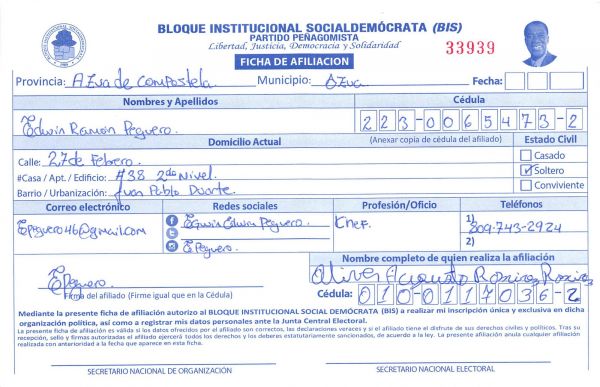 BLOQUE INSTITUCIONAL SOCIALDEMÓCRATA (BIS)
PARTIDO PEÑAGOMISTA
Libertad, Justicia, Democracia y Solidaridad
33939
FICHA DE AFILIACION
Provincia: Azua de Compostela Municipio: Azua Fecha:
Nombres y Apellidos Cédula
Edwin Ramón Peguero. 223-0065473-2
Domicilio Actual (Anexar copia de cédula del afiliado) Estado Civil
Calle: 27 de Febrero. Casado
#Casa / Apt. / Edificio: #38 2do Nivel. Soltero
Barrio / Urbanización: Juan Pablo Duarte. Conviviente
Correo electrónico Redes sociales Profesión/Oficio Teléfonos
Epeguero46@gmail.com Edwin Peguero. Chef. 1) 809-743-2924
EPeguero. 2)
Nombre completo de quien realiza la afiliación
EPeguero. Augusto Ramirez Ramirez
Firma del afiliado (Firme igual que en la Cédula) Cédula: 010-0117036-2
Mediante la presente ficha de afiliación autorizo al BLOQUE INSTITUCIONAL SOCIAL DEMÓCRATA (BIS) a realizar mi inscripción única y exclusiva en dicha
organización política, así como a registrar mis datos personales ante la Junta Central Electoral.
La presente ficha de afiliación es válida si los datos ofrecidos por el afiliado son correctos, las declaraciones veraces y si el afiliado tiene el disfrute de sus derechos civiles y políticos. Tras su
recepción, sello y firmas autorizadas el afiliado ejercerá todos los derechos y los deberes estatutariamente sancionados, de acuerdo a la ley. La presente afiliación anula cualquier afiliación
realizada con anterioridad a la fecha que aparece en esta ficha.
SECRETARIO NACIONAL DE ORGANIZACIÓN SECRETARIO NACIONAL ELECTORAL